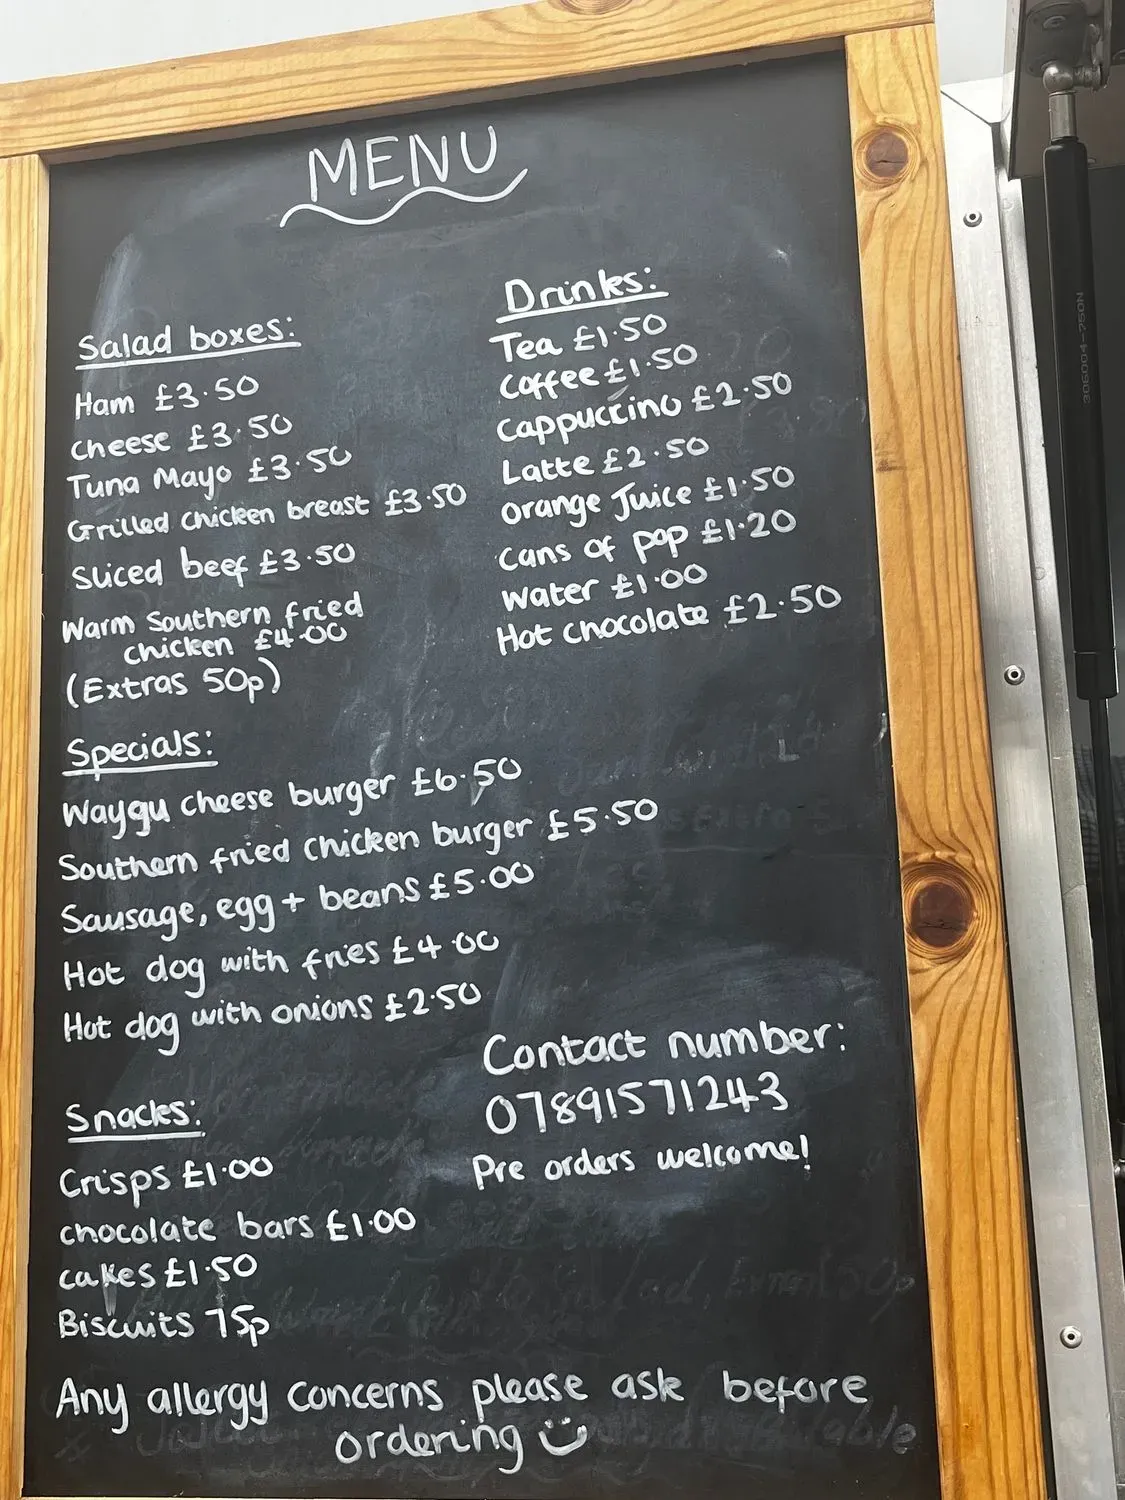 MENU
Salad boxes:
Ham £3.50
Cheese £3.50
Tuna Mayo £3.50
Grilled chicken breast £3.50
Sliced beef £3.50
Warm Southern fried
chicken £4.00
(Extras 50p)
Drinks:
Tea £1.50
Coffee £1.50
Cappuccino £2.50
Latte £2.50
Orange Juice £1.50
Cans of pop £1.20
Water £1.00
Hot chocolate £2.50
Specials:
Waygu cheese burger £6.50
Southern fried chicken burger £5.50
Sausage, egg + beans £5.00
Hot dog with fries £4.00
Hot dog with onions £2.50
Snacks:
Crisps £1.00
chocolate bars £1.00
cakes £1.50
Biscuits 75p
Contact number:
07891571243
Pre orders welcome!
Any allergy concerns please ask before
ordering
306004-750N